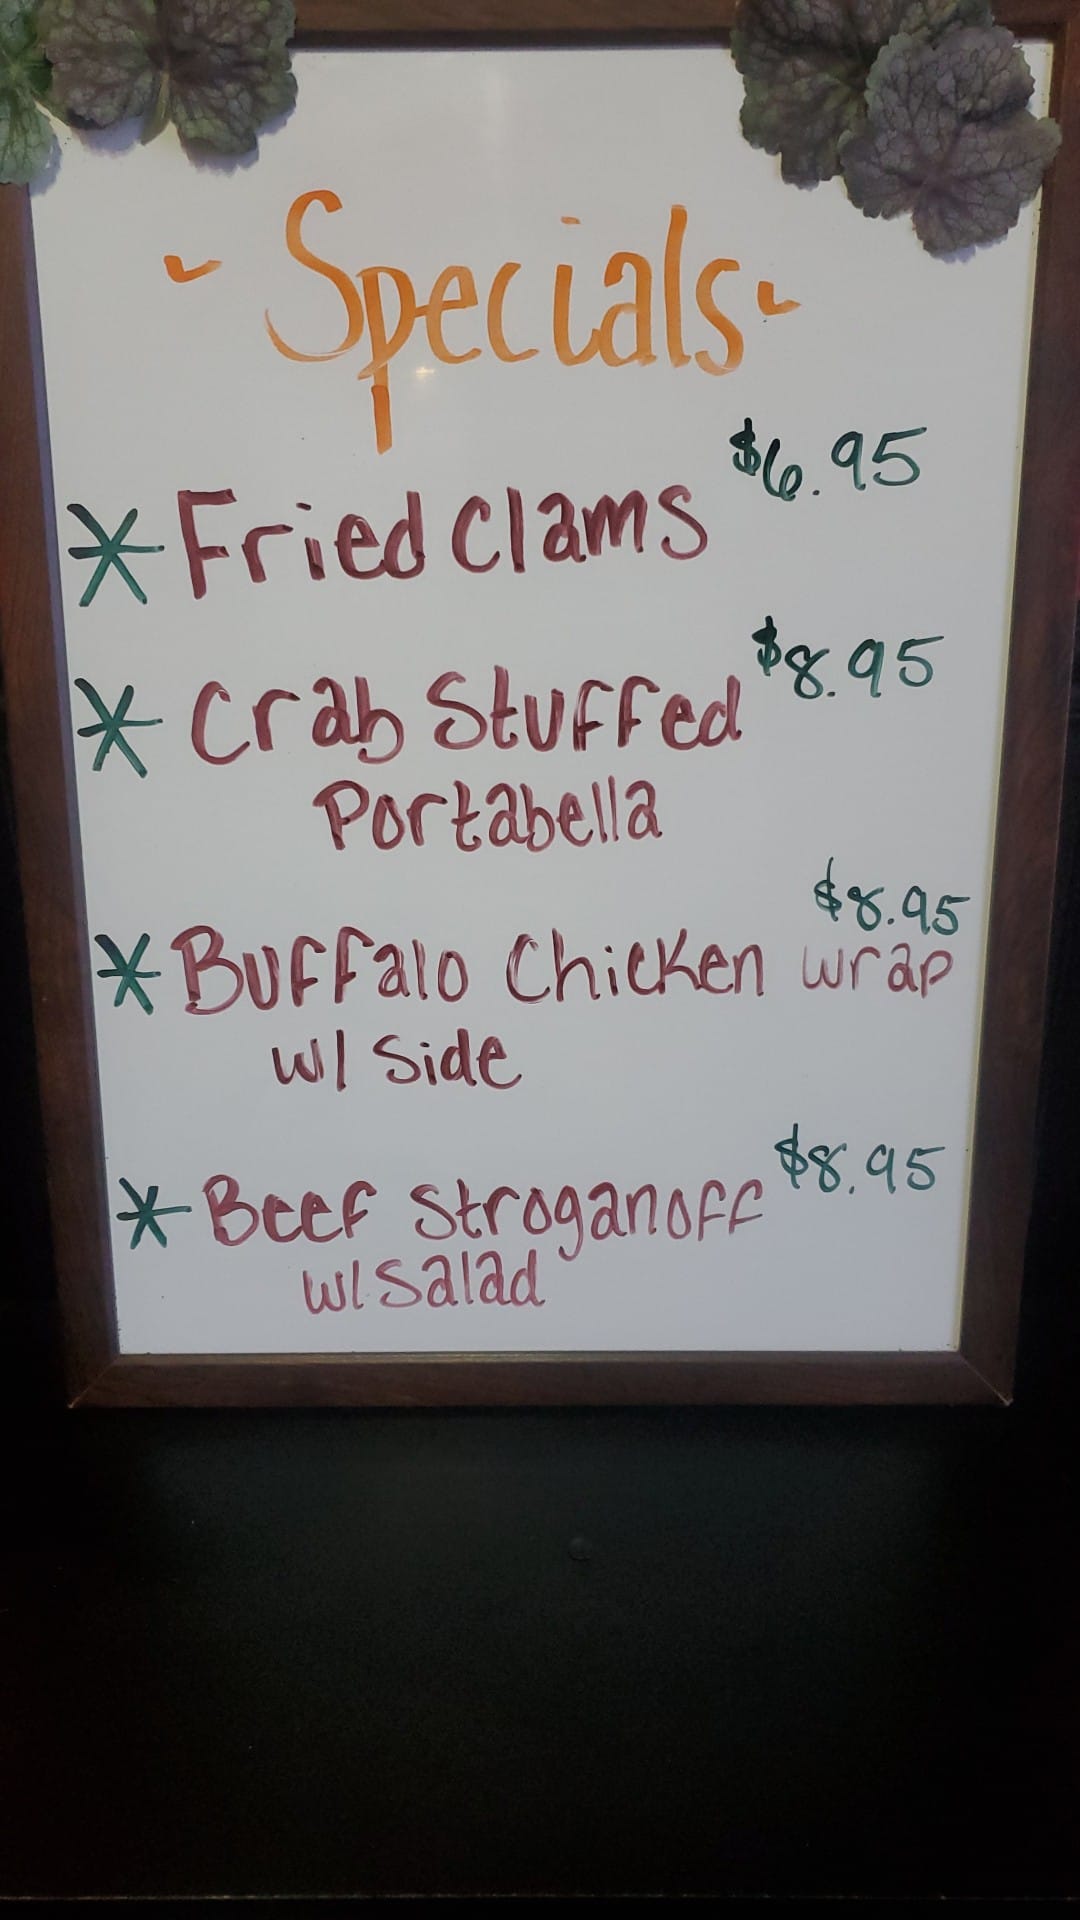 ~ Specials ~
$6.95
* Fried Clams
$8.95
* Crab Stuffed
Portabella
$8.95
* Buffalo Chicken wrap
w/ Side
$8.95
* Beef Stroganoff
w/ Salad